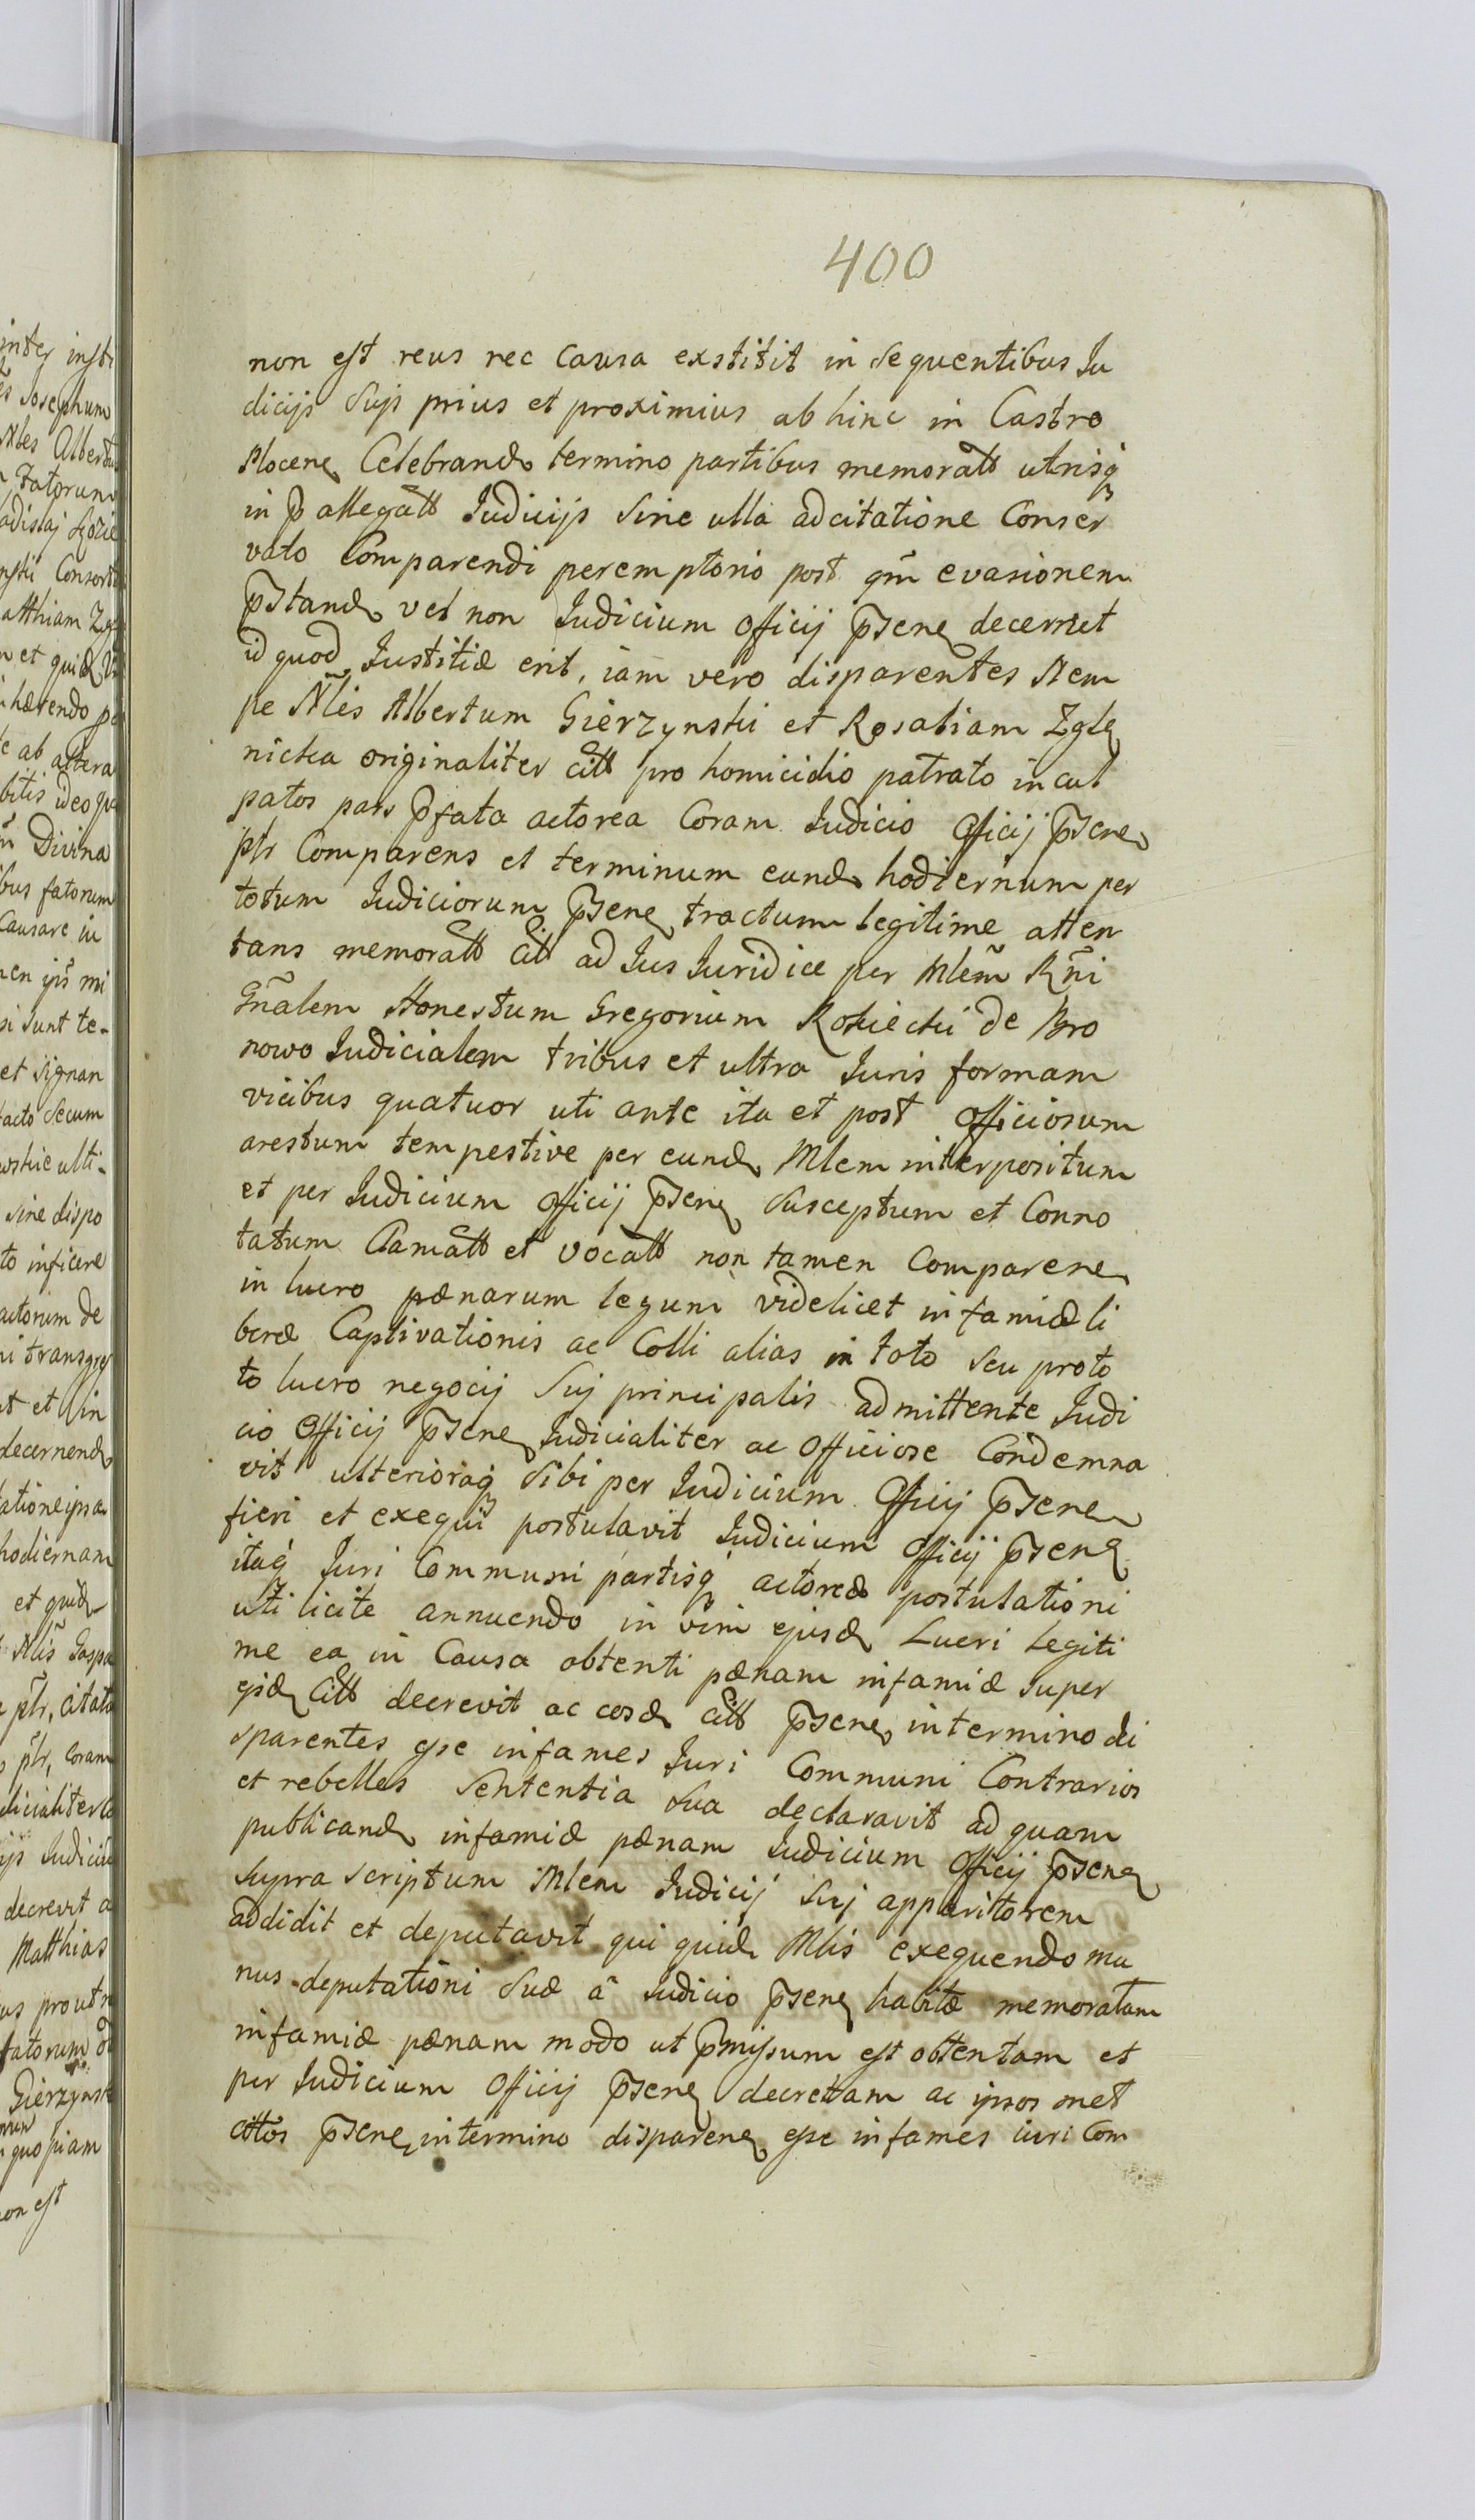 400
non est reus nec causa exstitit in sequentibus Ju
dicijs Sujs prius et proximius ab hinc in Castro
Plocen Celebrand termino partibus memoratt utrisq
in p allegatt Judicijs Sine ulla adcitatione Conser
vato Comparendi peremptorio post qm evasionem
pstand vel non Judicium Officij psen decernet
id quod Justitiæ erit, iam vero disparentes Nem
pe Nles Albertum Gierzynski et Rosaliam Zgle
nicka originaliter citt pro homicidio patrato incul
patos pars pfata actorea Coram Judicio Officij psen
ptr Comparens et terminum eund hodiernum per
totum Judiciorum psen tractum legitime atten
tans memoratt citt ad Jus Juridice per Mlem Rni
Gnalem Honestum Gregorium Rokicki de Bro
nowo Judicialem tribus et ultra Juris formam
vicibus quatuor uti ante ita et post Officiosum
arestum tempestive per eund Mlem interpositum
et per Judicium Officij psen Susceptum et Conno
tatum Clamatt et vocatt non tamen Comparen
in lucro pænarum legum videlicet infamiæ li
beræ Captivationis ac Colli alias in toto seu proto
to lucro negocij Suj principalis admittente Judi
cio Officij psen Judicialiter ac Officiose Condemna
vit ulterioraq Sibi per Judicium Officij psen
fieri et exequi postulavit Judicium Officij psen
itaq Juri Communi partisq actoreæ postulationi
uti licite annuendo in vim ejusd Lucri Legiti
me ea in Causa obtenti pænam infamiæ super
eisd Citt decrevit ac eosd citt psen in termino di
sparentes esse infames Juri Communi Contrarios
et rebelles Sententia Sua declaravit ad quam
publicand infamiæ pænam Judicium Officij psen
Supra scriptum Mlem Judicij Suj apparitorem
addidit et deputavit qui quid Mlis exequendo mu
nus deputationi Suæ â Judicio psen habitæ memoratam
infamiæ pænam modo ut pmissum est obtentam et
per Judicium Officij psen decretam ac ipsos met
cittos psen in termino disparen esse infames iuri Com